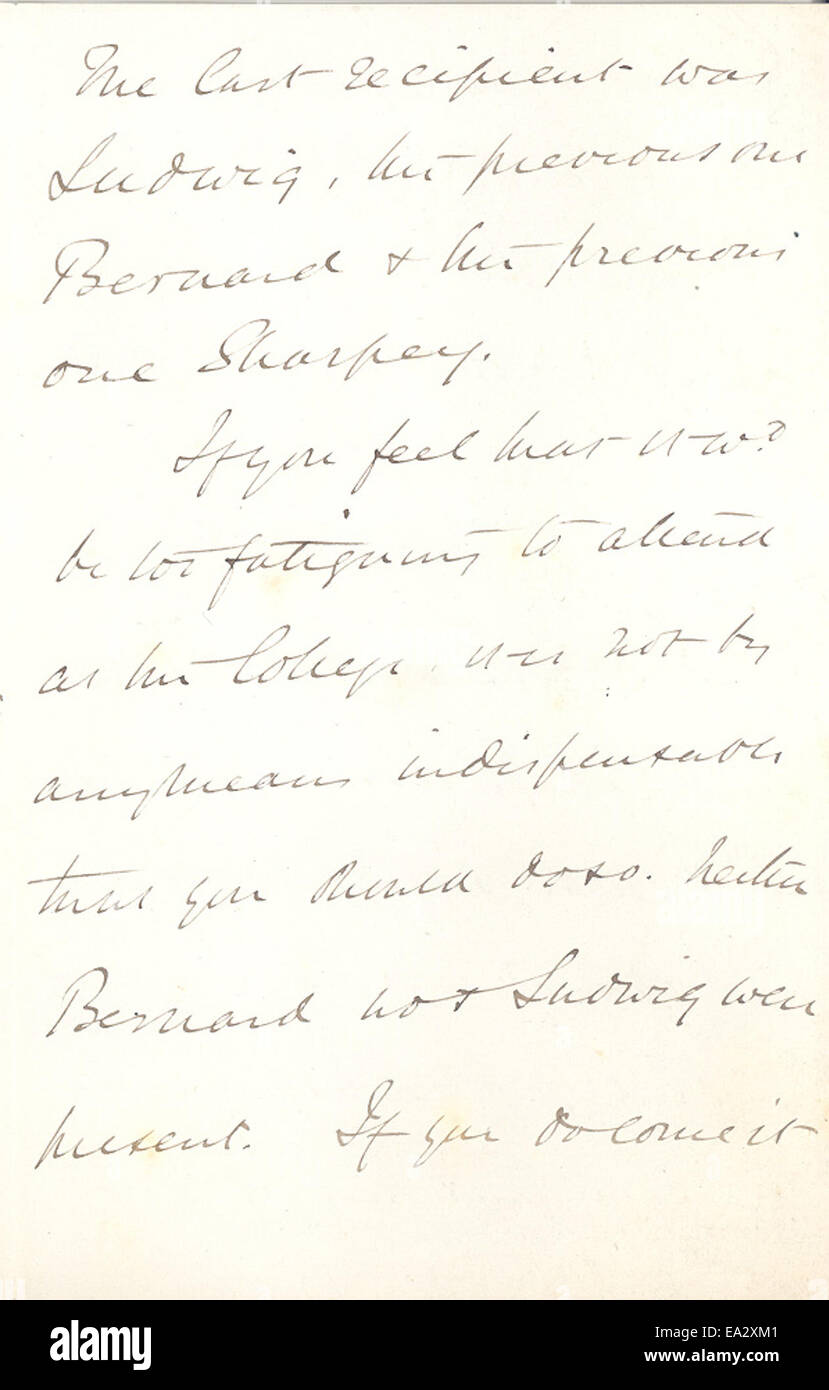 The last recipient was
Ludwig, the previous one
Bernard & the previous
one Sharpey.
If you feel that it wd
be too fatiguing to attend
at the College, it is not by
any means indispensable
that you should do so. Neither
Bernard nor Ludwig were
present. If you do come it
alamy
Image ID: EA2XM1
www.alamy.com